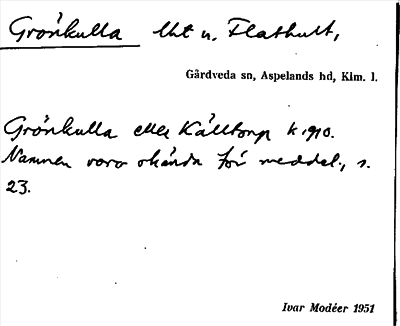 Grönkulla lht u. Flathult,
Gårdveda sn, Aspelands hd, Klm. l.
Grönkulla eller Källtorp k 1910.
Namnen voro okända för meddel., s.
23.
Ivar Modéer 1951